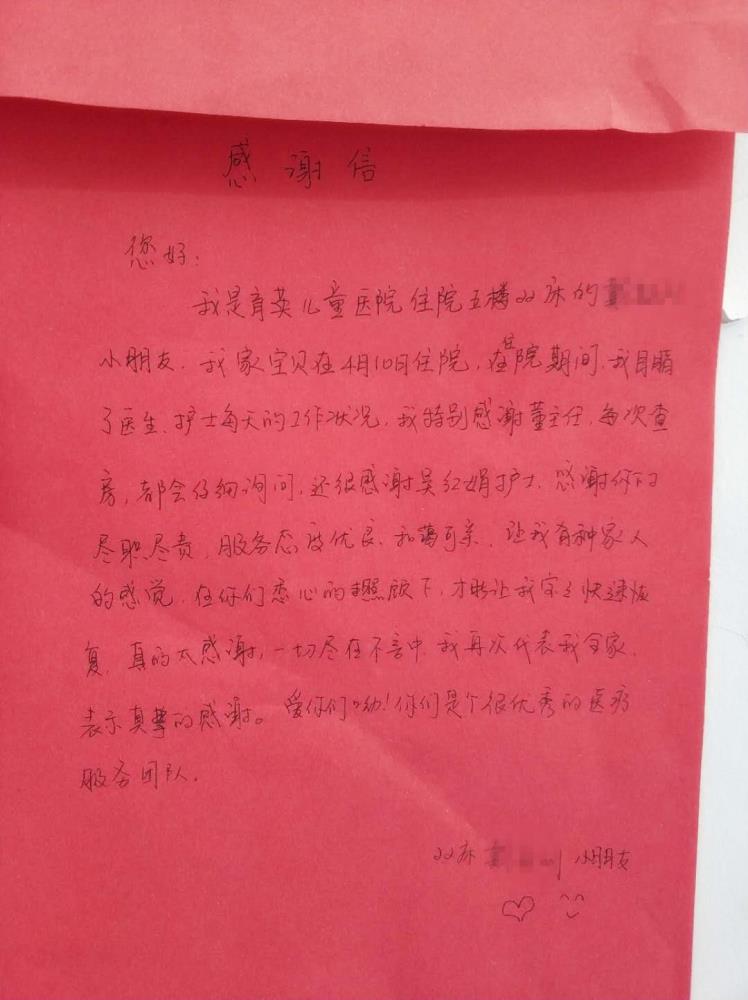 感谢信
您好:
我是育英儿童医院住院五楼22床的
小朋友.我家宝贝在4月10日住院,在住院期间,我目睹
了医生、护士每天的工作状况,我特别感谢董主任,每次查
房,都会仔细询问,还很感谢吴红娟护士.感谢你们
尽职尽责,服务态度优良、和蔼可亲,让我有种家人
的感觉,在你们悉心的照顾下,才能让我宝宝快速恢
复,真的太感谢,一切尽在不言中,我再次代表我全家,
表示真挚的感谢。爱你们呦!你们是个很优秀的医疗
服务团队.
22床 小朋友